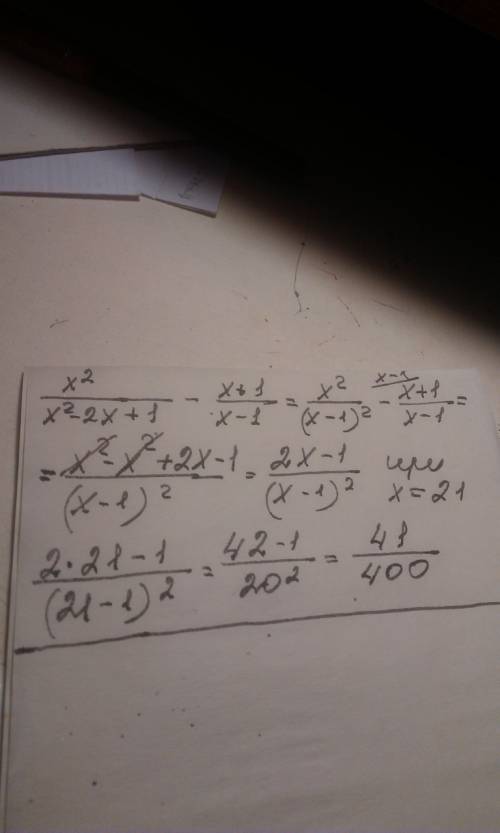 x²/(x²-2x+1) - (x+1)/(x-1) = x²/(x-1)² - (x+1)/(x-1) ^(x-1) =
= (x²-x²+2x-1)/(x-1)² = (2x-1)/(x-1)² при x=21
(2·21-1)/(21-1)² = (42-1)/20² = 41/400